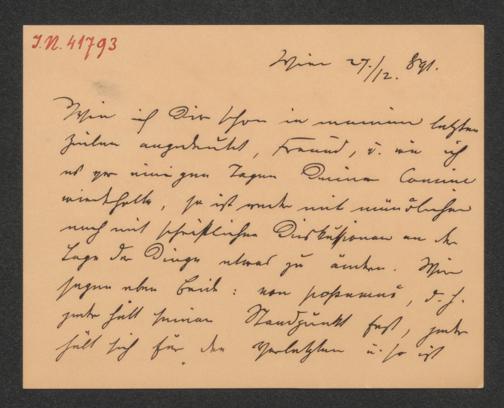 I.N. 41793
Wien 27./12. 891.
Wie ich Dir schon in meinen letzten
Zeilen angedeutet, Freund, u. wie ich
es vor einigen Tagen Deiner Cousine
wiederholte, so ist weder mit mündlichen
noch mit schriftlichen Diskussionen an der
Lage der Dinge etwas zu ändern. Wir
sagen eben Beide: non possumus, d. h.
jeder hält seinen Standpunkt fest, jeder
hält sich für den Verletzten u. so ist